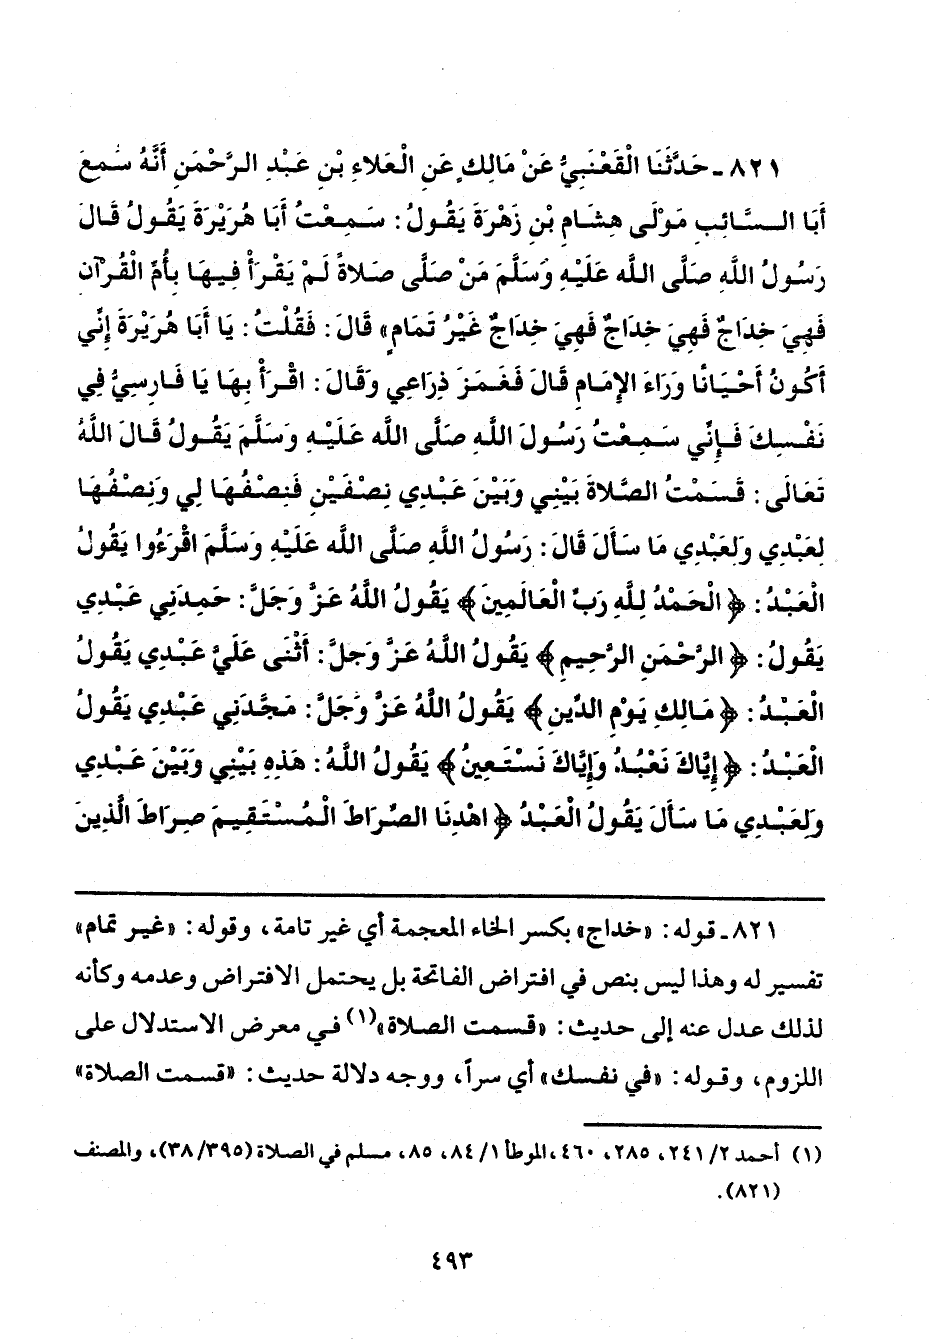 ٨٢١ ـ حَدَّثَنَا الْقَعْنَبِيُّ عَنْ مَالِكٍ عَنِ الْعَلاءِ بْنِ عَبْدِ الرَّحْمَنِ أَنَّهُ سَمِعَ
أَبَا السَّائِبِ مَوْلَى هِشَامِ بْنِ زَهْرَةَ يَقُولُ: سَمِعْتُ أَبَا هُرَيْرَةَ يَقُولُ قَالَ
رَسُولُ اللَّهِ صَلَّى اللَّه عَلَيْهِ وَسَلَّمَ مَنْ صَلَّى صَلاةً لَمْ يَقْرَأْ فِيهَا بِأُمِّ الْقُرْآنِ
فَهِيَ خِدَاجٌ فَهِيَ خِدَاجٌ فَهِيَ خِدَاجٌ غَيْرُ تَمَامٍ» قَالَ: فَقُلْتُ: يَا أَبَا هُرَيْرَةَ إِنِّي
أَكُونُ أَحْيَانًا وَرَاءَ الإِمَامِ قَالَ فَغَمَزَ ذِرَاعِي وَقَالَ: اقْرَأْ بِهَا يَا فَارِسِيُّ فِي
نَفْسِكَ فَإِنِّي سَمِعْتُ رَسُولَ اللَّهِ صَلَّى اللَّه عَلَيْهِ وَسَلَّمَ يَقُولُ قَالَ اللَّهُ
تَعَالَى: قَسَمْتُ الصَّلاةَ بَيْنِي وَبَيْنَ عَبْدِي نِصْفَيْنِ فَنِصْفُهَا لِي وَنِصْفُهَا
لِعَبْدِي وَلِعَبْدِي مَا سَأَلَ قَالَ: رَسُولُ اللَّهِ صَلَّى اللَّه عَلَيْهِ وَسَلَّمَ اقْرَءُوا يَقُولُ
الْعَبْدُ: ﴿الْحَمْدُ لِلَّهِ رَبِّ الْعَالَمِينَ﴾ يَقُولُ اللَّهُ عَزَّ وَجَلَّ: حَمِدَنِي عَبْدِي
يَقُولُ: ﴿الرَّحْمَنِ الرَّحِيمِ﴾ يَقُولُ اللَّهُ عَزَّ وَجَلَّ: أَثْنَى عَلَيَّ عَبْدِي يَقُولُ
الْعَبْدُ: ﴿مَالِكِ يَوْمِ الدِّينِ﴾ يَقُولُ اللَّهُ عَزَّ وَجَلَّ: مَجَّدَنِي عَبْدِي يَقُولُ
الْعَبْدُ: ﴿إِيَّاكَ نَعْبُدُ وَإِيَّاكَ نَسْتَعِينُ﴾ يَقُولُ اللَّهُ: هَذِهِ بَيْنِي وَبَيْنَ عَبْدِي
وَلِعَبْدِي مَا سَأَلَ يَقُولُ الْعَبْدُ ﴿اهْدِنَا الصِّرَاطَ الْمُسْتَقِيمَ صِرَاطَ الَّذِينَ
٨٢١ ـ قوله: «خداج» بكسر الخاء المعجمة أي غير تامة، وقوله: «غير تمام»
تفسير له وهذا ليس بنص في افتراض الفاتحة بل يحتمل الافتراض وعدمه وكأنه
لذلك عدل عنه إلى حديث: «قسمت الصلاة»(١) في معرض الاستدلال على
اللزوم، وقوله: «في نفسك» أي سراً، ووجه دلالة حديث: «قسمت الصلاة»
(١) أحمد ٢/ ٢٤١، ٢٨٥، ٤٦٠، الموطأ ١/ ٨٤، ٨٥، مسلم في الصلاة (٣٩٥/ ٣٨)، والمصنف
(٨٢١).
٤٩٣